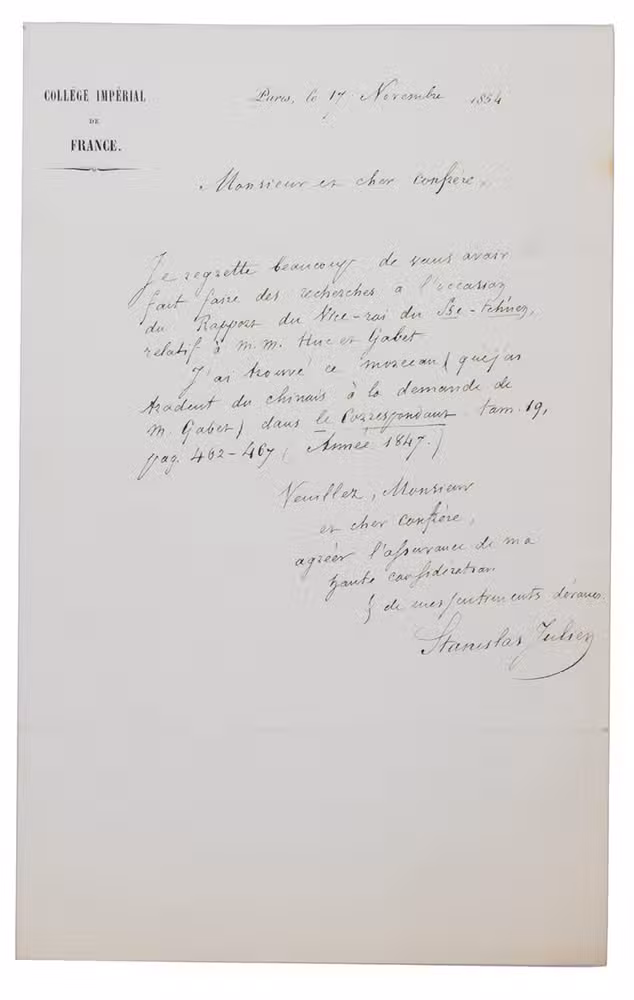 COLLÉGE IMPÉRIAL
DE
FRANCE.
Paris, le 17 Novembre 1854
Monsieur et cher confrère,
Je regrette beaucoup de vous avoir
fait faire des recherches à l'occasion
du Rapport du Vice-roi du Sse-tchuen,
relatif à M.M. Huc et Gabet.
J'ai trouvé ce morceau (que j'ai
traduit du chinois à la demande de
M. Gabet) dans le Correspondant tom. 19,
pag. 462-467 (Année 1847.)
Veuillez, Monsieur
et cher confrère,
agréer l'assurance de ma
haute considération
& de mes sentiments dévoués
Stanislas Julien